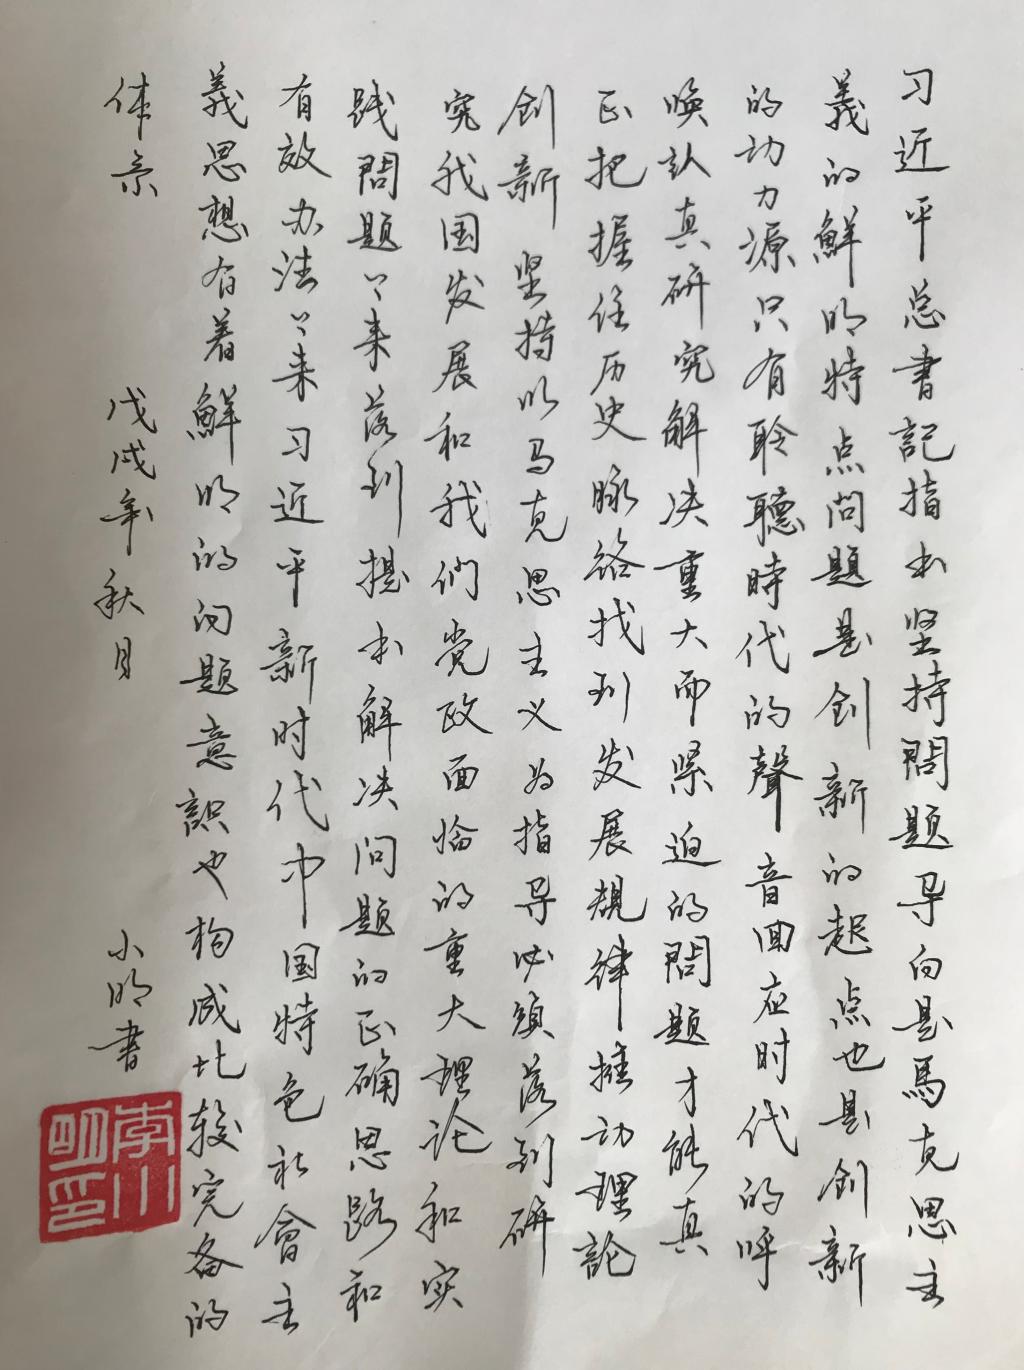 习近平总書記指出坚持問题导向是馬克思主
義的鮮明特点问題是创新的起点也是创新
的动力源只有聆聽時代的聲音回应时代的呼
唤认真研究解决重大而紧迫的問题才能真
正把握住历史脉络找到发展規律推动理論
创新坚持以马克思主义为指导必须落到研
究我国发展和我们党政面临的重大理论和实
践問题上来落到提出解决问题的正确思路和
有效办法上来习近平新时代中国特色社會主
義思想有着鮮明的问题意識也构成比较完备的
体系
戊戌年秋月
小明書
李小明印